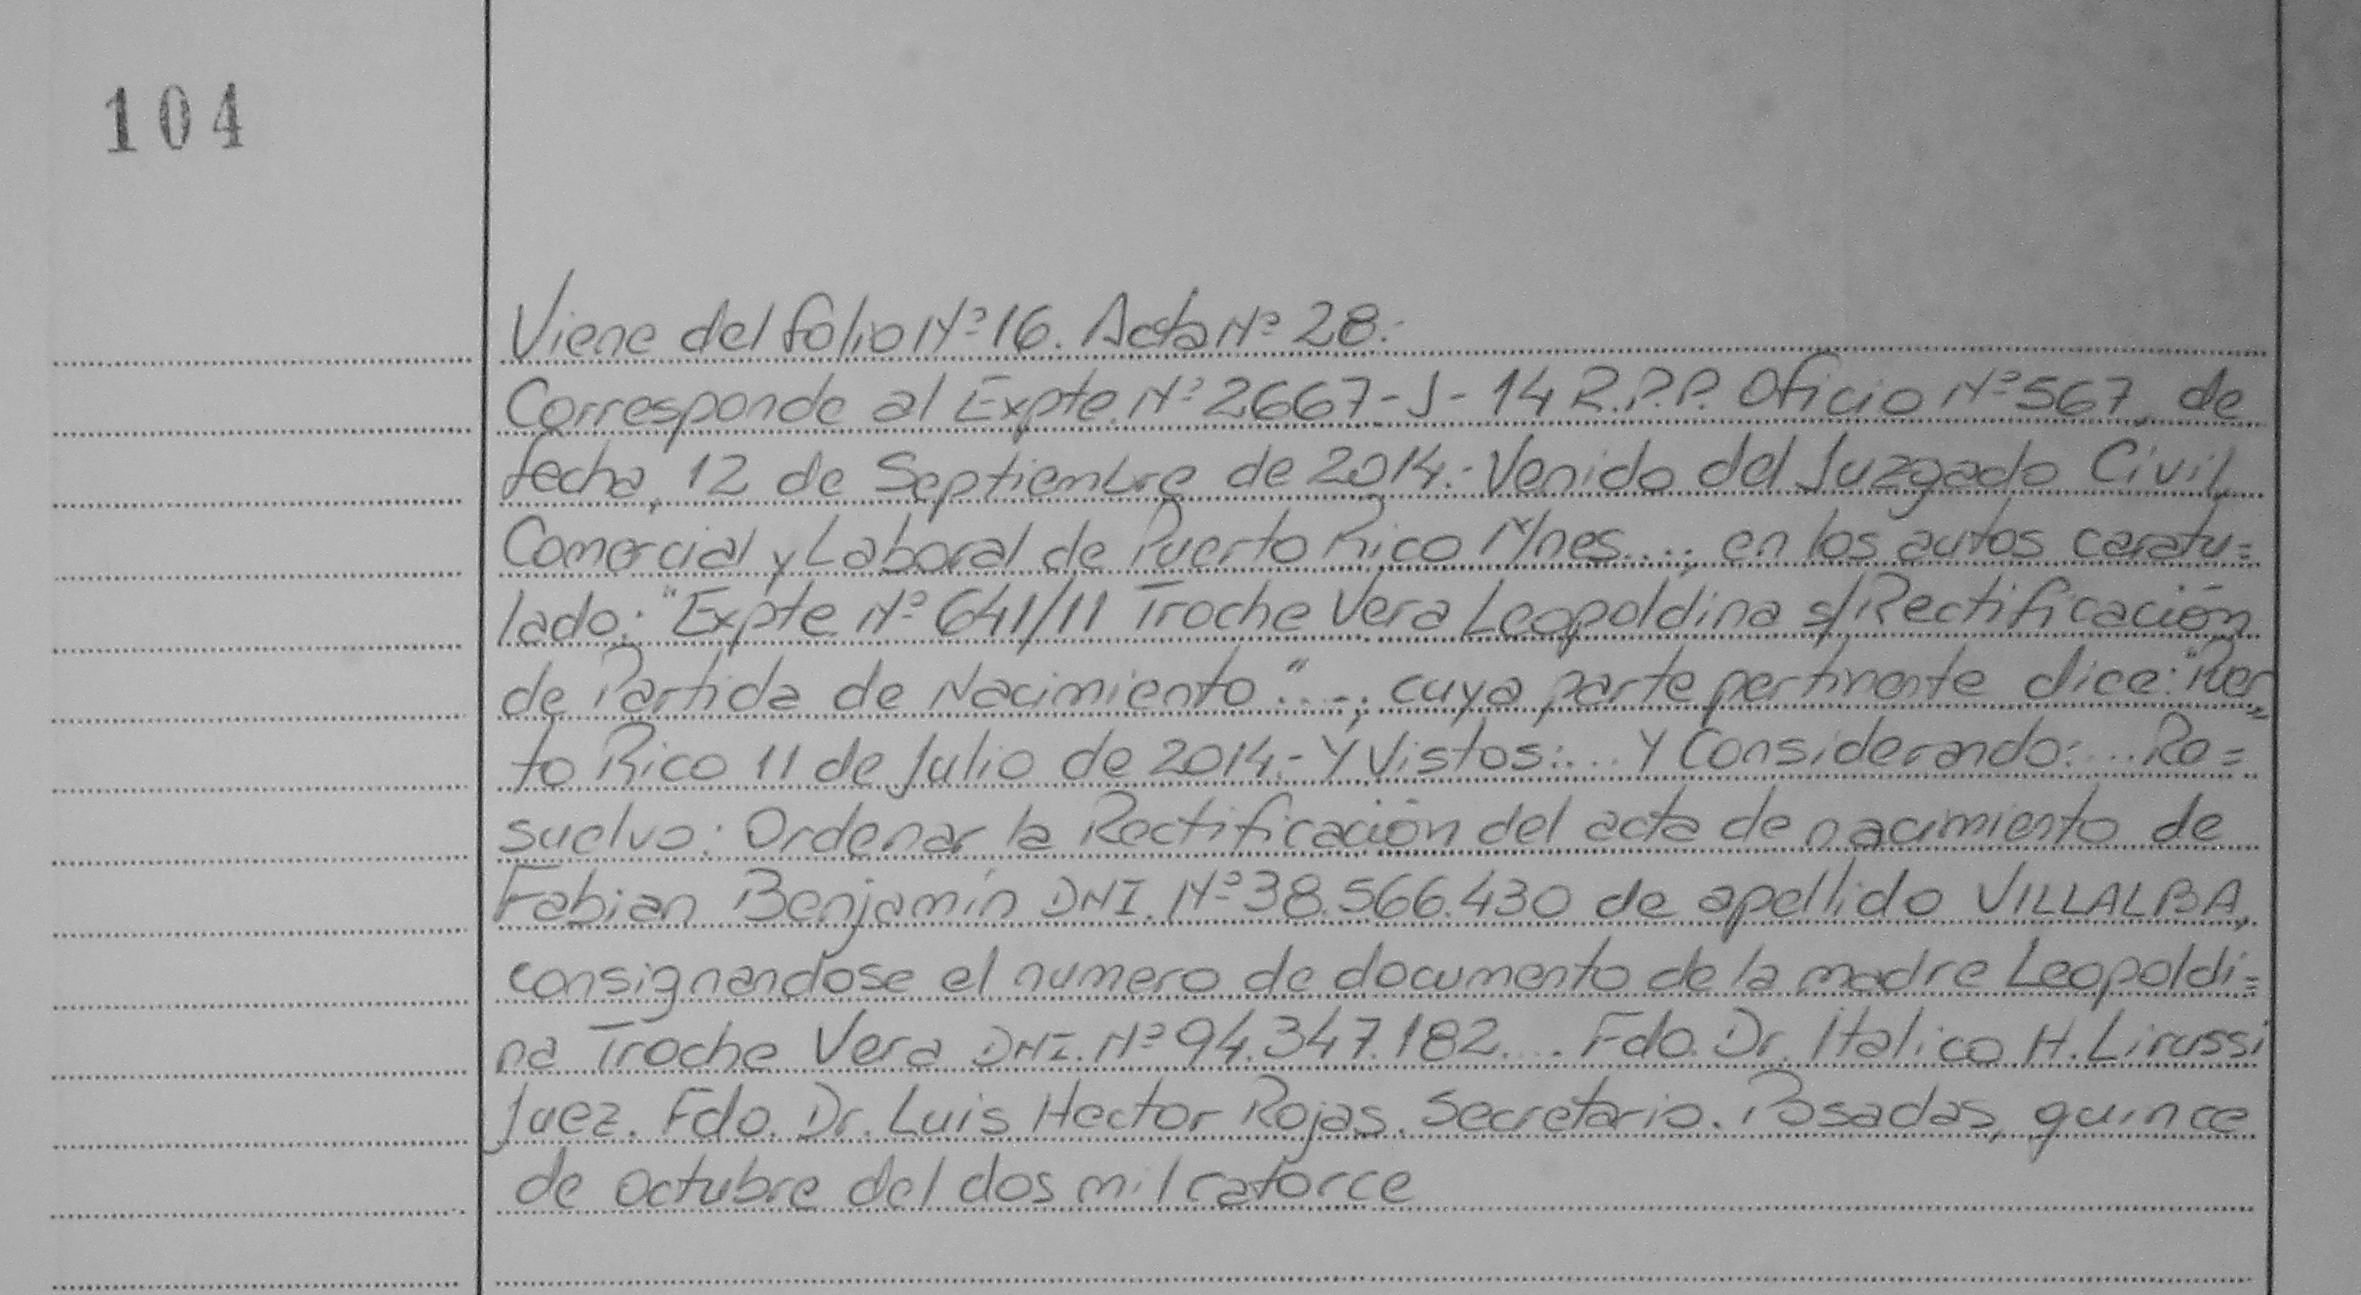 104
Viene del folio Nº 16. Acta Nº 28.-
Corresponde al Expte. Nº 2667-J-14 R.P.P. Oficio Nº 567, de
fecha, 12 de Septiembre de 2014.- Venido del Juzgado Civil,
Comercial y Laboral de Puerto Rico Mnes....; en los autos caratu=
lado: "Expte Nº 641/11 Troche Vera Leopoldina s/Rectificación
de Partida de Nacimiento"...; cuya parte pertinente dice: "Puer
to Rico 11 de Julio de 2014.- Y Vistos:... Y Considerando:... Re=
suelvo: Ordenar la Rectificación del acta de nacimiento de
Fabian Benjamín DNI. Nº 38.566.430 de apellido VILLALBA,
consignandose el numero de documento de la madre Leopoldi=
na Troche Vera DNI. Nº 94.347.182.... Fdo. Dr. Italico H. Lirussi
Juez. Fdo. Dr. Luis Hector Rojas. Secretario. Posadas, quince
de octubre del dos mil catorce